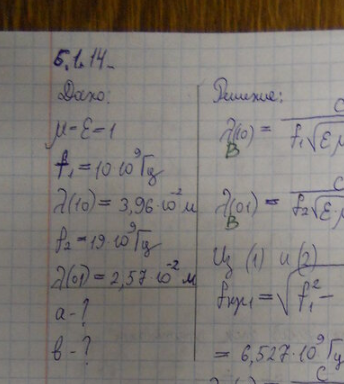 5.1.14.
Дано:
μ=ε=1
f₁=10·10⁹Гц
λ(10)=3,96·10⁻²м
f₂=19·10⁹Гц
λ(01)=2,57·10⁻²м
a-?
в-?
Решение:
λ(10) = c
В f₁√ε μ
λ(01) = c
В f₂√ε μ
Из (1) и (2)
fкр₁ = √f₁² −
= 6,527·10⁹Гц
c